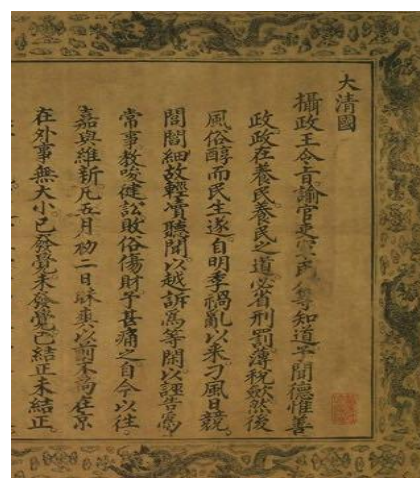 大清國
攝政王令旨諭官吏軍民人等知道予聞德惟善
政政在養民養民之道必省刑罰薄稅斂然後
風俗醇而民生遂自明季禍亂以來刁風日競
閭閻細故輕瀆聽聞以越訴為等閑以誣告爲
常事教唆健訟敗俗傷財予甚痛之自今以往
嘉與維新凡五月初二日昧爽以前不問在京
在外事無大小已發覺未發覺已結正未結正